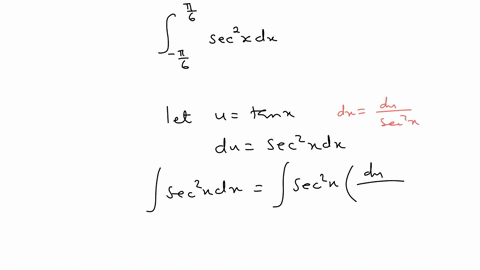 ∫_{-π/6}^{π/6} sec²x dx
let u = tanx dx = du/sec²x
du = sec²x dx
∫ sec²x dx = ∫ sec²x (du/